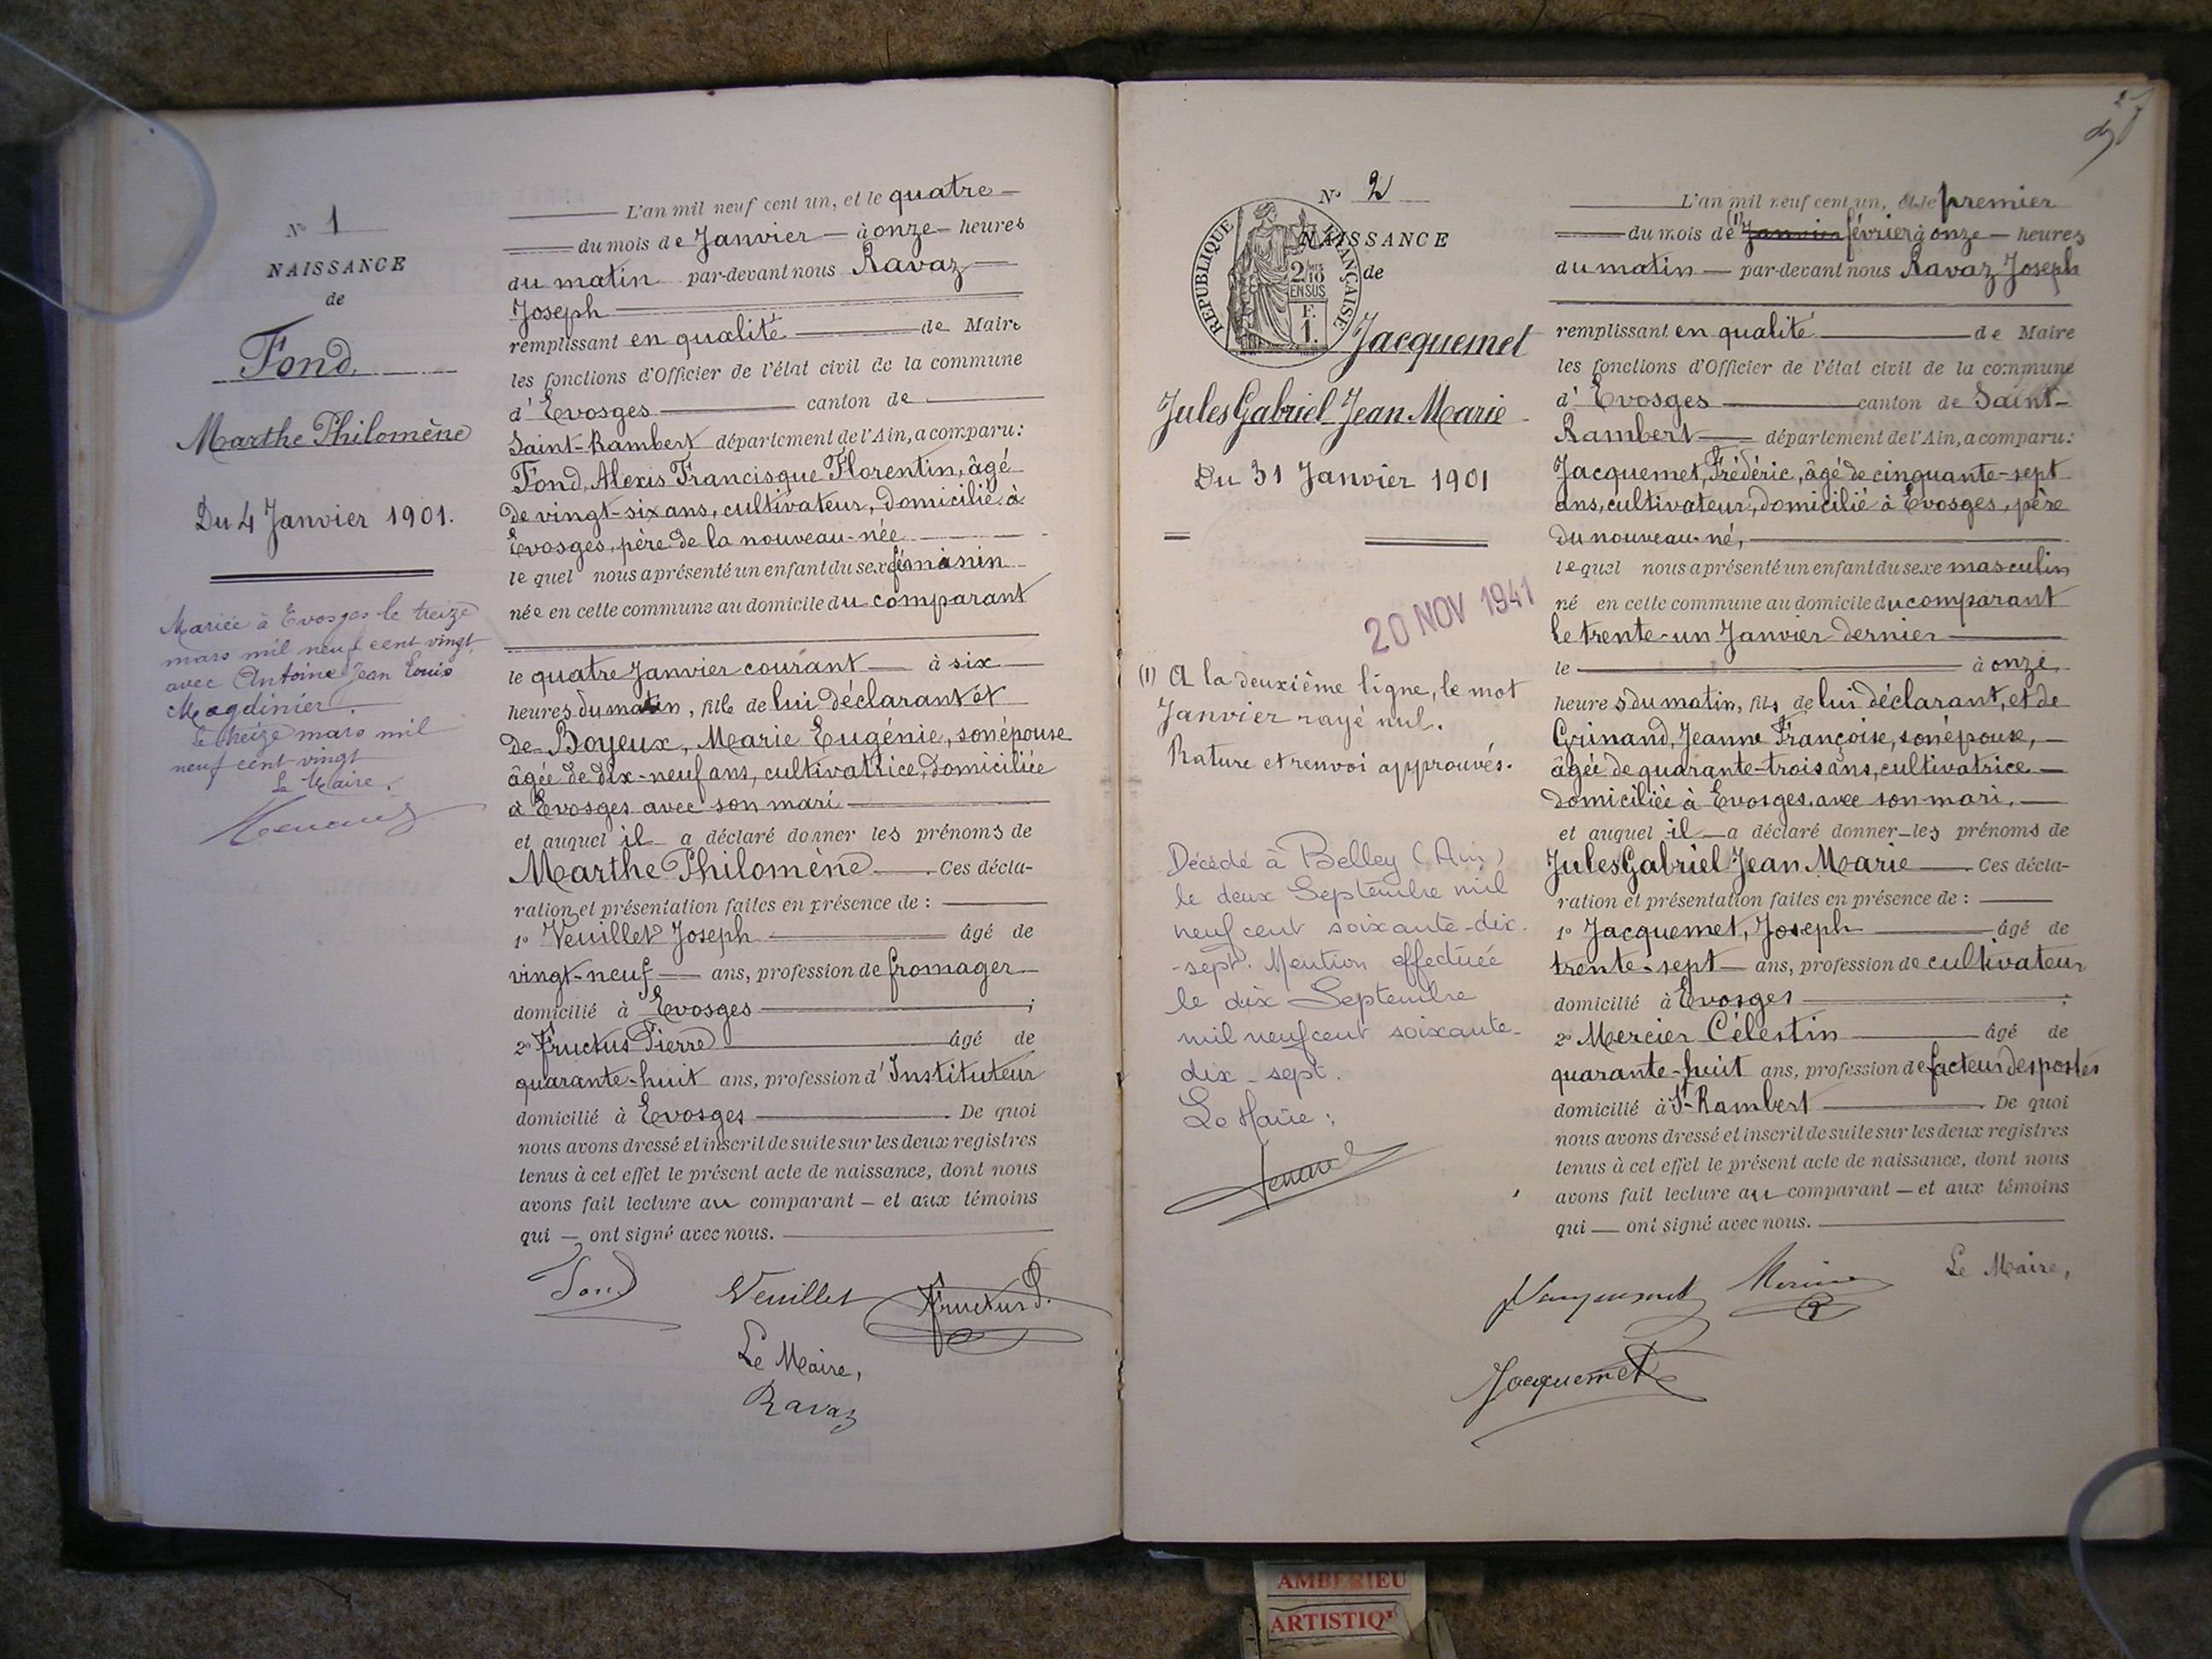 N° 1
NAISSANCE
de
Fond
Marthe Philomène
Du 4 Janvier 1901.
Mariée à Evosges le treize
mars mil neuf cent vingt
avec Antoine Jean Louis
Magdinier.
Le treize mars mil
neuf cent vingt
Le Maire,
L'an mil neuf cent un, et le quatre
du mois de Janvier à onze heures
du matin par-devant nous Ravaz
Joseph
remplissant en qualité de Maire
les fonctions d'Officier de l'état civil de la commune
d'Evosges canton de
Saint-Rambert département de l'Ain, a comparu:
Fond, Alexis Francisque Florentin, âgé
de vingt-six ans, cultivateur, domicilié à
Evosges, père de la nouveau-née
le quel nous a présenté un enfant du sexe féminin
née en cette commune au domicile du comparant
le quatre Janvier courant à six
heures du matin, fille de lui déclarant et
de Boyeux, Marie Eugénie, son épouse
âgée de dix-neuf ans, cultivatrice, domiciliée
à Evosges avec son mari
et auquel il a déclaré donner les prénoms de
Marthe Philomène. Ces décla-
ration et présentation faites en présence de :
1° Veuillet Joseph âgé de
vingt-neuf ans, profession de fromager
domicilié à Evosges ;
2° Fructus Pierre âgé de
quarante-huit ans, profession d'Instituteur
domicilié à Evosges. De quoi
nous avons dressé et inscrit de suite sur les deux registres
tenus à cet effet le présent acte de naissance, dont nous
avons fait lecture au comparant — et aux témoins
qui — ont signé avec nous.
Fond Veuillet Fructus P.
Le Maire,
Ravaz
N° 2
REPUBLIQUE FRANÇAISE
2/10 EN SUS
F. 1.
NAISSANCE
de
Jacquemet
Jules Gabriel Jean Marie
Du 31 Janvier 1901
20 NOV 1941
(1) A la deuxième ligne, le mot
Janvier rayé nul.
Rature et renvoi approuvés.
Décédé à Belley (Ain)
le deux Septembre mil
neuf cent soixante-dix
-sept. Mention effectuée
le dix Septembre
mil neuf cent soixante-
dix-sept.
Le Maire :
L'an mil neuf cent un, et le premier
du mois de (1) Janvier février à onze heures
du matin par-devant nous Ravaz Joseph
remplissant en qualité de Maire
les fonctions d'Officier de l'état civil de la commune
d'Evosges canton de Saint-
Rambert département de l'Ain, a comparu:
Jacquemet, Frédéric, âgé de cinquante-sept
ans, cultivateur, domicilié à Evosges, père
du nouveau-né,
lequel nous a présenté un enfant du sexe masculin
né en cette commune au domicile du comparant
le trente-un Janvier dernier
le à onze
heures du matin, fils de lui déclarant, et de
Guinand, Jeanne Françoise, son épouse,
âgée de quarante-trois ans, cultivatrice
domiciliée à Evosges avec son mari,
et auquel il a déclaré donner les prénoms de
Jules Gabriel Jean Marie. Ces décla-
ration et présentation faites en présence de :
1° Jacquemet, Joseph âgé de
trente-sept ans, profession de cultivateur
domicilié à Evosges ;
2° Mercier Célestin âgé de
quarante-huit ans, profession de facteur des postes
domicilié à St-Rambert. De quoi
nous avons dressé et inscrit de suite sur les deux registres
tenus à cet effet le présent acte de naissance, dont nous
avons fait lecture au comparant — et aux témoins
qui — ont signé avec nous.
Jacquemet Mercier Le Maire,
Jacquemet
AMBERIEU
ARTISTIQ